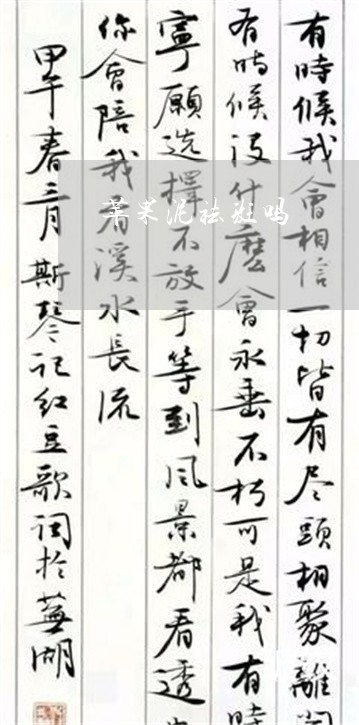 有時候我會相信一切皆有尽頭相聚離
有時候没什麽會永垂不朽可是我有時
寧願选擇不放手等到风景都看透
你會陪我看溪水長流
甲午春三月斯琴记红豆歌词於蕪湖
苹果泥祛斑吗